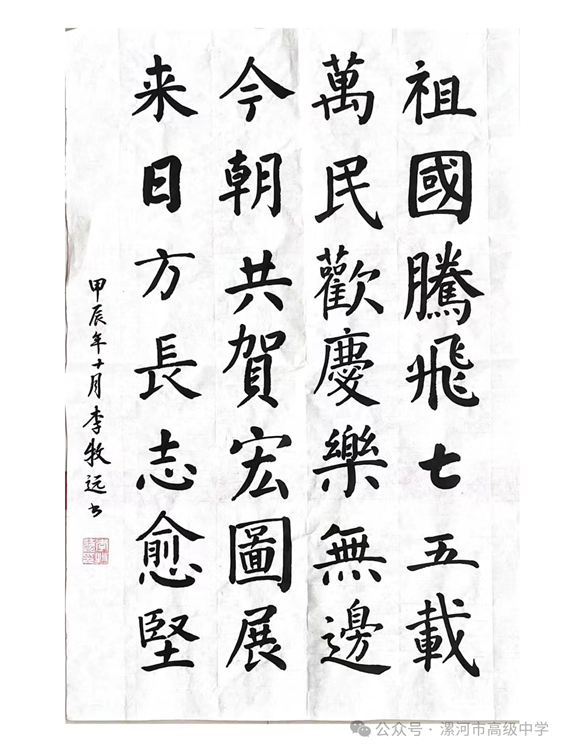 祖國騰飛七五載
萬民歡慶樂無邊
今朝共賀宏圖展
来日方長志愈堅
甲辰年十月李牧远书
公众号·漯河市高级中学